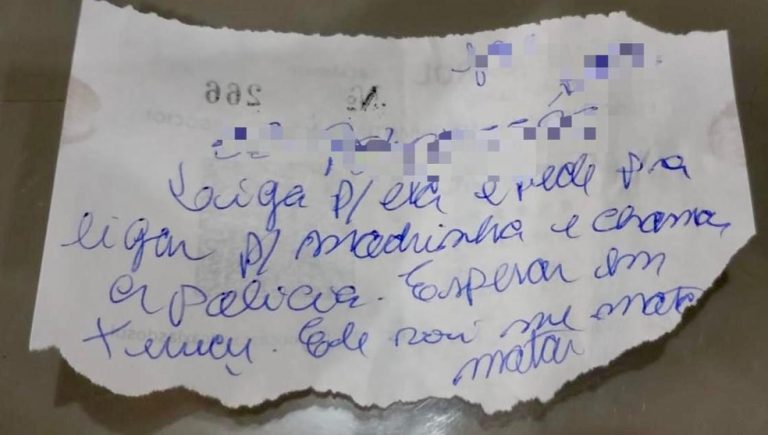 266 Nº
Liga p/ ela e pede pra
ligar p/ madrinha e chamar
a polícia. Esperar em
Ele vai me matar
matar